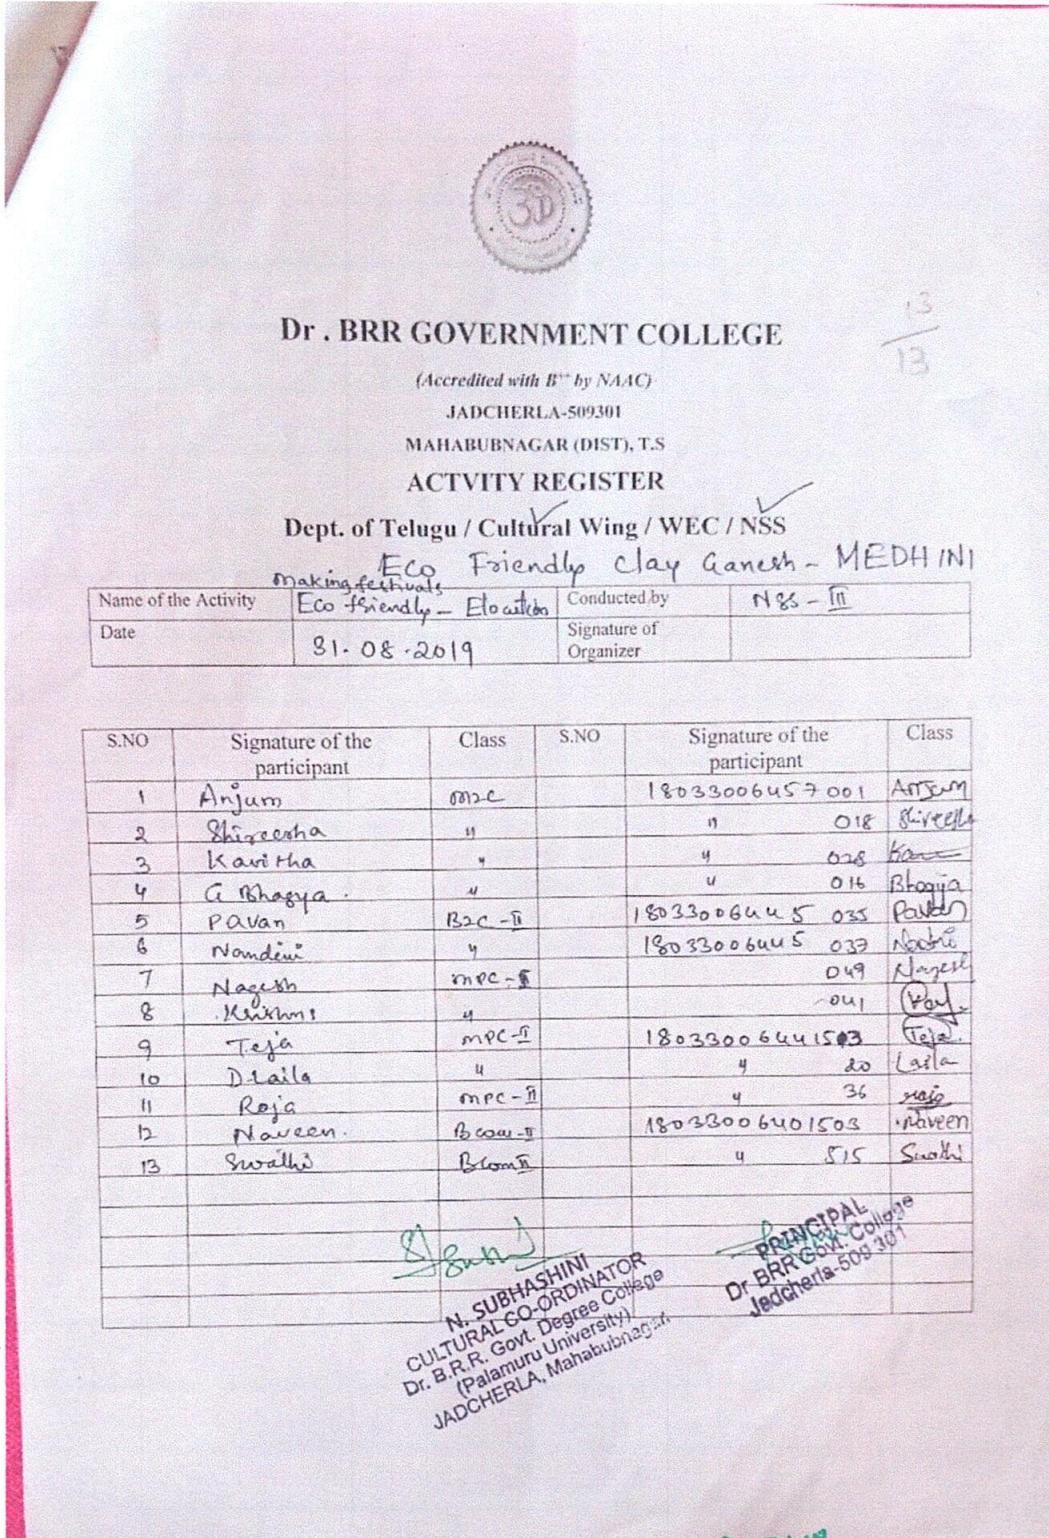 13
13
Dr . BRR GOVERNMENT COLLEGE
(Accredited with B++ by NAAC)
JADCHERLA-509301
MAHABUBNAGAR (DIST), T.S
ACTVITY REGISTER
Dept. of Telugu / Cultural Wing / WEC / NSS
Eco Friendly Clay Ganesh - MEDHINI
making festivals
Name of the Activity Eco friendly - Elocution Conducted by NSS - III
Date 31.08.2019 Signature of Organizer
S.NO Signature of the participant Class S.NO Signature of the participant Class
1 Anjum MZC 18033006457001 Anjum
2 Shireesha " " 018 Shireesha
3 Kavitha " " 028
4 G Bhagya . " " 016 Bhagya
5 Pavan BZC - II 18033006445 035 Pavan
6 Nandini " 18033006445 037
7 Nagesh MPC - II 049 Nagesh
8 " 041
9 Teja MPC - II 18033006441503 Teja
10 D. Laila " " 20 Laila
11 Roja MPC - II " 36 roja
12 Naveen. Bcom - II 18033006401503 Naveen
13 Swathi Bcom II " 515 Swathi
N. SUBHASHINI
CULTURAL CO-ORDINATOR
Dr. B.R.R. Govt. Degree College
(Palamuru University)
JADCHERLA, Mahabubnagar.
PRINCIPAL
Dr BRR Govt. College
Jadcherla-509 301